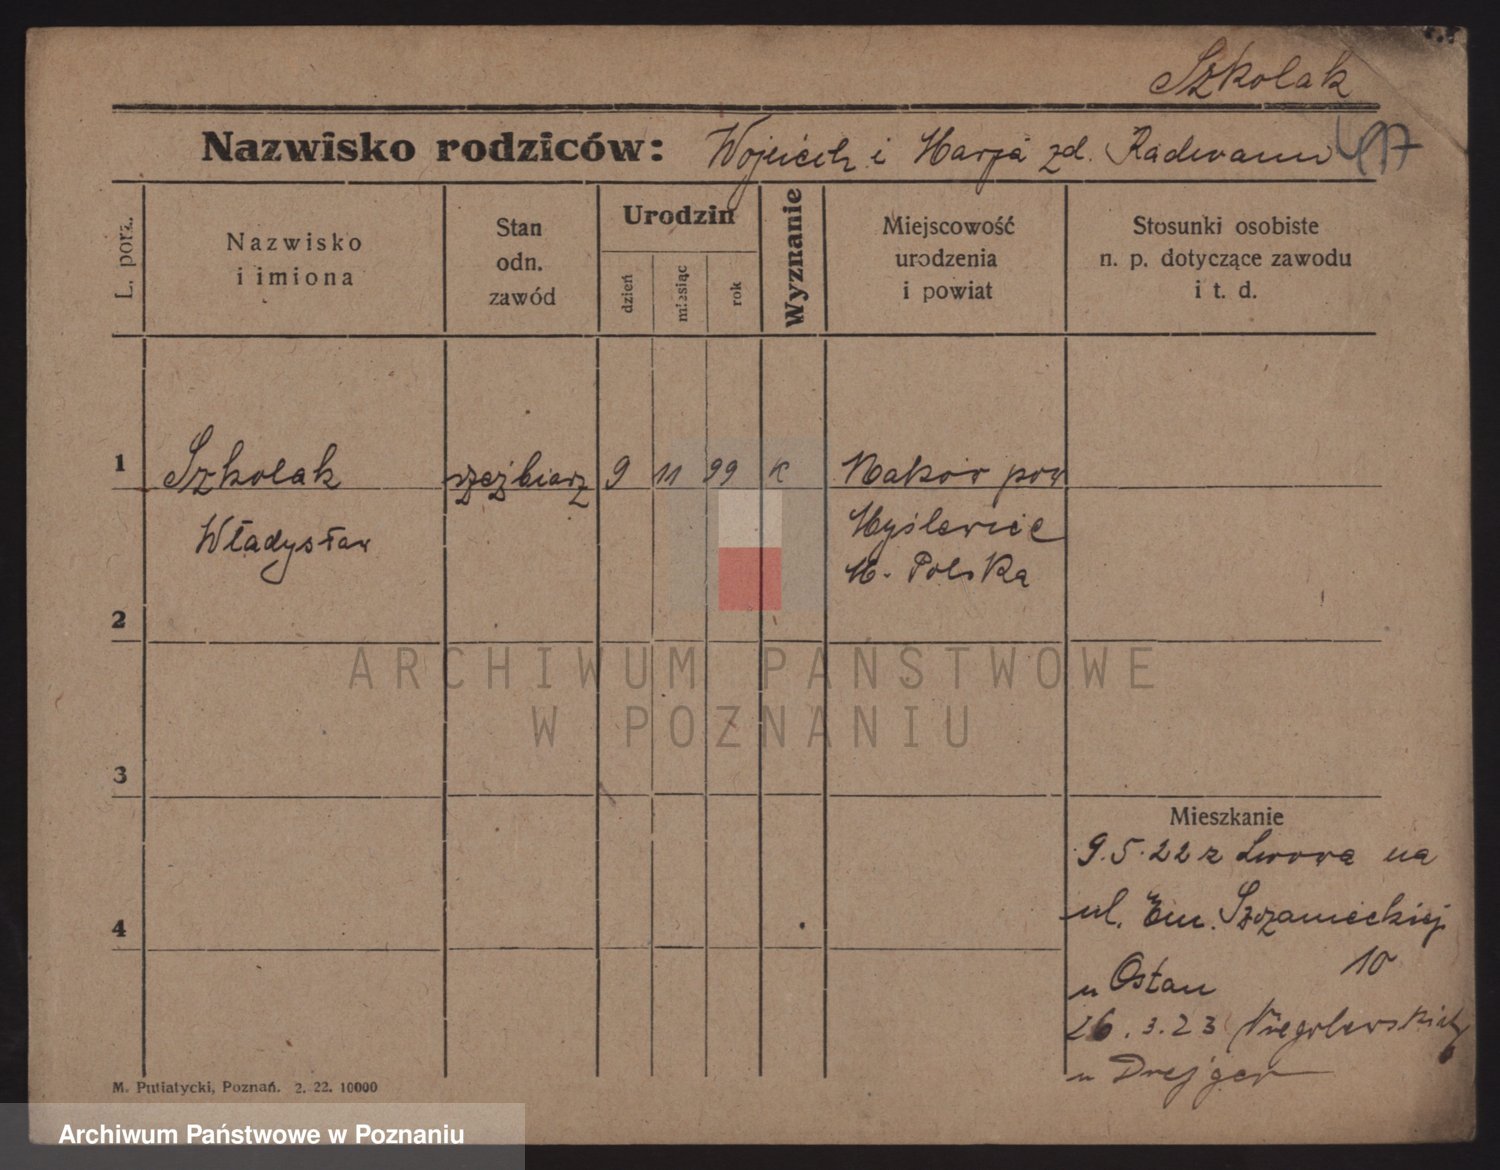 Szkolak
497
Nazwisko rodziców: Wojciech i Marja zd. Radwann
L. porz.
Nazwisko
i imiona
Stan
odn.
zawód
Urodzin
dzień
miesiąc
rok
Wyznanie
Miejscowość
urodzenia
i powiat
Stosunki osobiste
n. p. dotyczące zawodu
i t. d.
1 Szkolak rzeźbiarz 9 11 99 K Maków pow
Władysław Myślenice
M. Polska
2
ARCHIWUM PAŃSTWOWE
W POZNANIU
3
Mieszkanie
9.5.22 z Lwowa na
ul. Em. Szczanieckiej
10
4
u Ostan
26.3.23 Niegolewskich
u Drejger
M. Putiatycki, Poznań. 2. 22. 10000
Archiwum Państwowe w Poznaniu